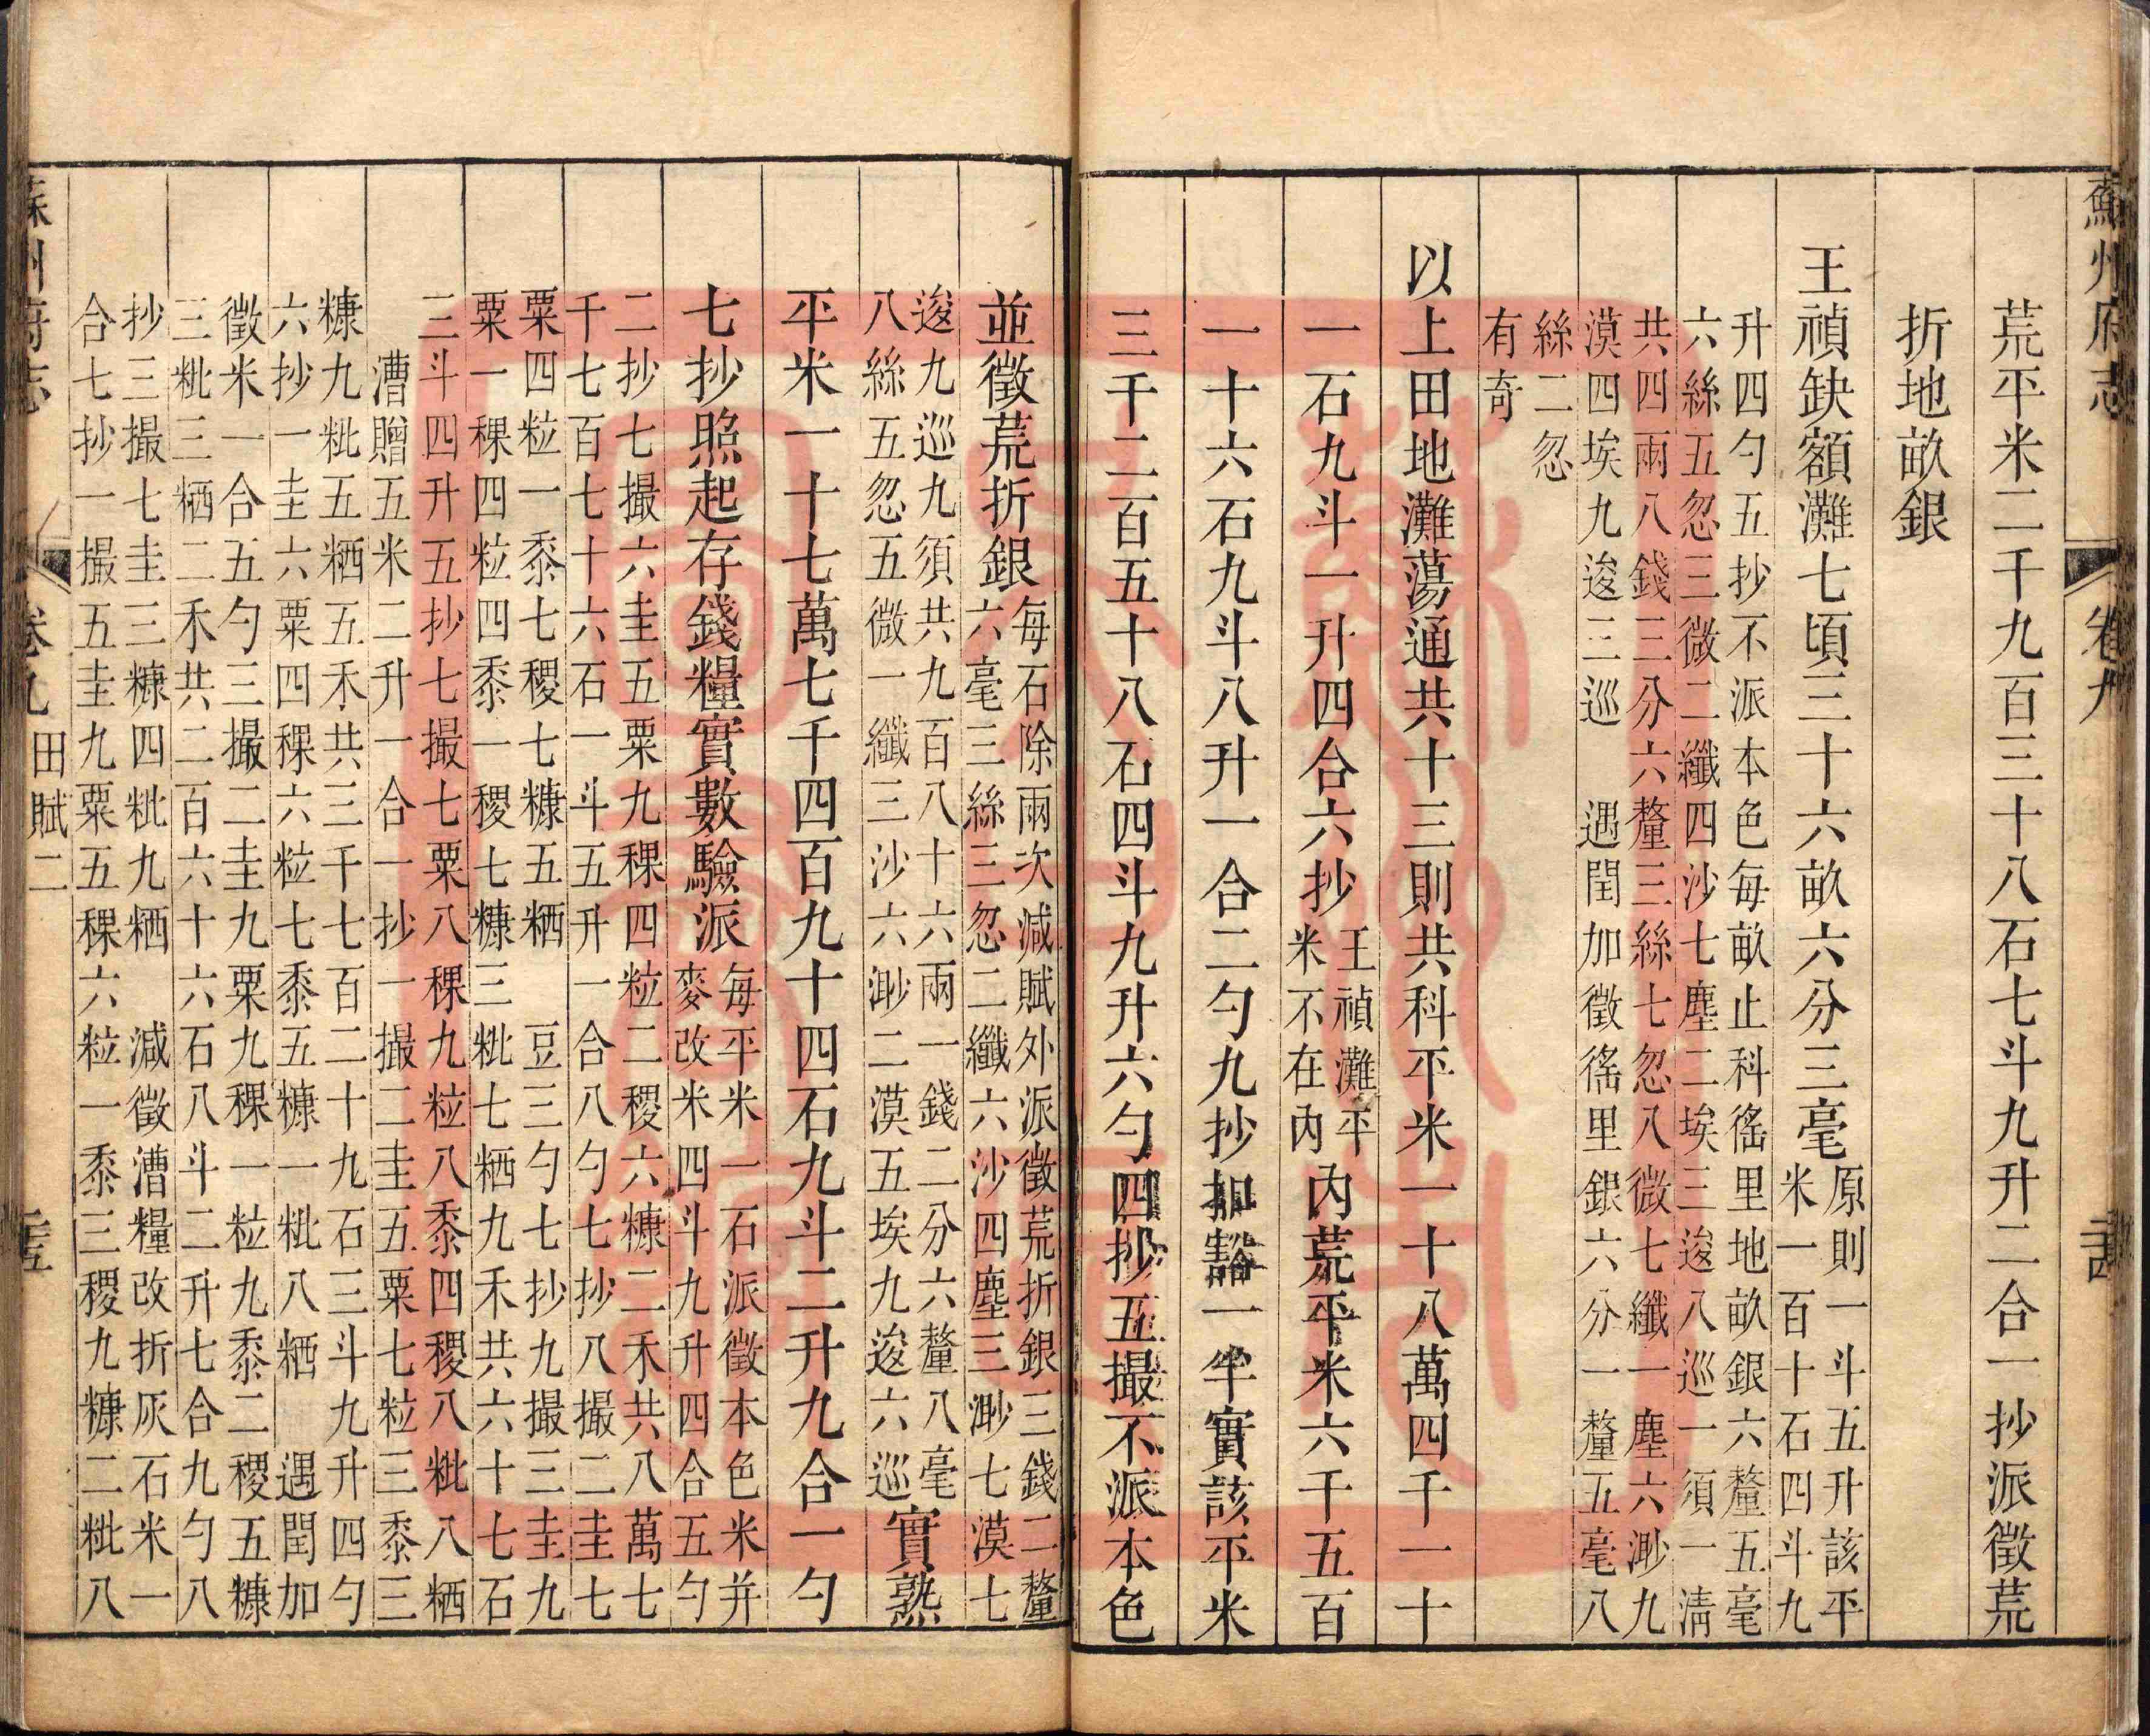 蘇州府志 卷九
荒平米二千九百三十八石七斗九升二合一抄派徵荒
折地畝銀
王禎缺額灘七頃三十六畝六分三毫
原則一斗五升該平
米一百十石四斗九
升四勺五抄不派本色每畝止科徭里地畝銀六釐五毫
六絲五忽三微二纖四沙七塵二埃三逡八巡一須一清
共四兩八錢三分六釐三絲七忽八微七纖一塵六渺九
漠四埃九逡三巡 遇閏加徵徭里銀六分一釐五毫八
絲二忽
有奇
以上田地灘蕩通共十三則共科平米一十八萬四千一十
一石九斗一升四合六抄
王禎灘平
米不在內
內荒平米六千五百
一十六石九斗八升一合二勺九抄扣豁一半實該平米
三千二百五十八石四斗九升六勺四抄五撮不派本色
並徵荒折銀
每石除兩次減賦外派徵荒折銀三錢二釐
六毫三絲三忽二纖六沙四塵三渺七漠七
逡九巡九須共九百八十六兩一錢二分六釐八毫
八絲五忽五微一纖三沙六渺二漠五埃九逡六巡
實熟
平米一十七萬七千四百九十四石九斗二升九合一勺
七抄照起存錢糧實數驗派
每平米一石派徵本色米并
麥改米四斗九升四合五勺
二抄七撮六圭五粟九稞四粒二稷六糠二禾共八萬七
千七百七十六石一斗五升一合八勺七抄八撮二圭七
粟四粒一黍七稷七糠五粞 豆三勺七抄九撮三圭九
粟一稞四粒四黍一稷七糠三粃七粞九禾共六十七石
三斗四升五抄七撮七粟八稞九粒八黍四稷八粃八粞
漕贈五米二升一合一抄一撮二圭五粟七粒三黍三
糠九粃五粞五禾共三千七百二十九石三斗九升四勺
六抄一圭六粟四稞六粒七黍五糠一粃八粞 遇閏加
徵米一合五勺三撮二圭九粟九稞一粒九黍二稷五糠
三粃三粞二禾共二百六十六石八斗二升七合九勺八
抄三撮七圭三糠四粃九粞 減徵漕糧改折灰石米一
合七抄一撮五圭九粟五稞六粒一黍三稷九糠二粃八
卷九 田賦二